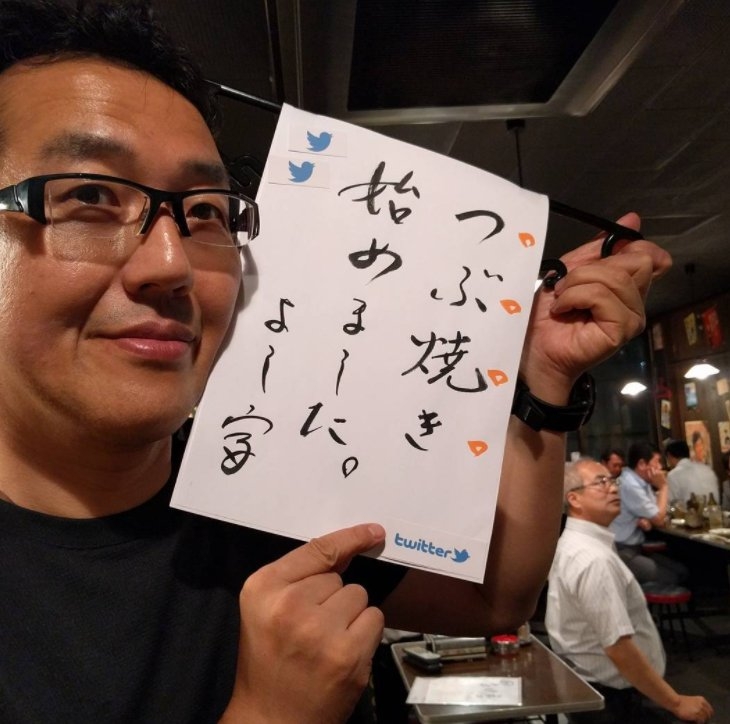 つぶ焼き
始めました。
よし富
twitter